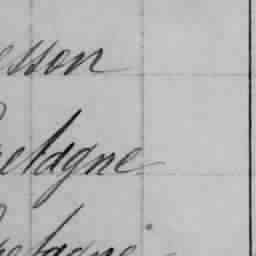 esson
retagne
retagne